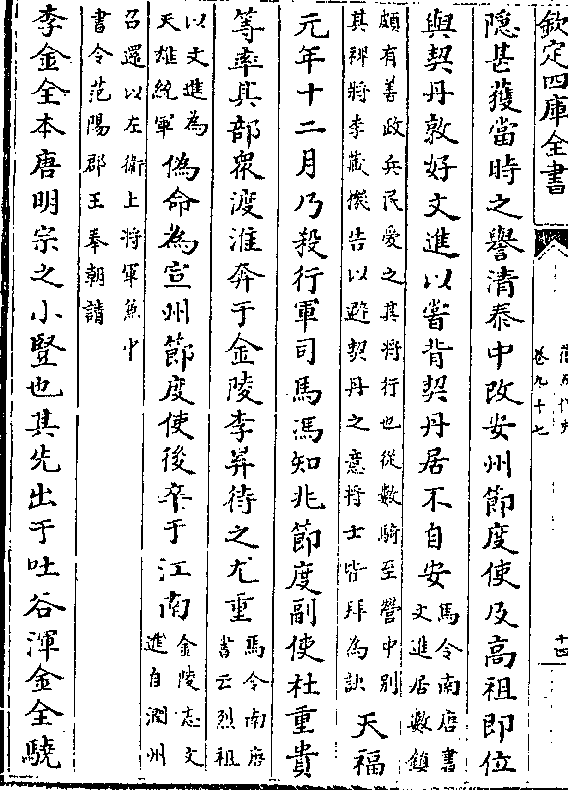 欽定四庫全書
舊五代史
卷九十七
十四
隱甚獲當時之譽清泰中改安州節度使及高祖即位
與契丹敦好文進以嘗背契丹居不自安馬令南唐書
文進居數鎮
頗有善政兵民愛之其將行也從數騎至營中别
其裨將李藏機告以避契丹之意將士皆拜為訣天福
元年十二月乃殺行軍司馬馮知兆節度副使杜重貴
等率其部眾渡淮奔于金陵李昪待之尤重馬令南唐
書云烈祖
以文進為
天雄統軍偽命為宣州節度使後卒于江南金陵志文
進自潤州
召還以左衛上將軍兼中
書令范陽郡王奉朝請
李金全本唐明宗之小豎也其先出于吐谷渾金全驍